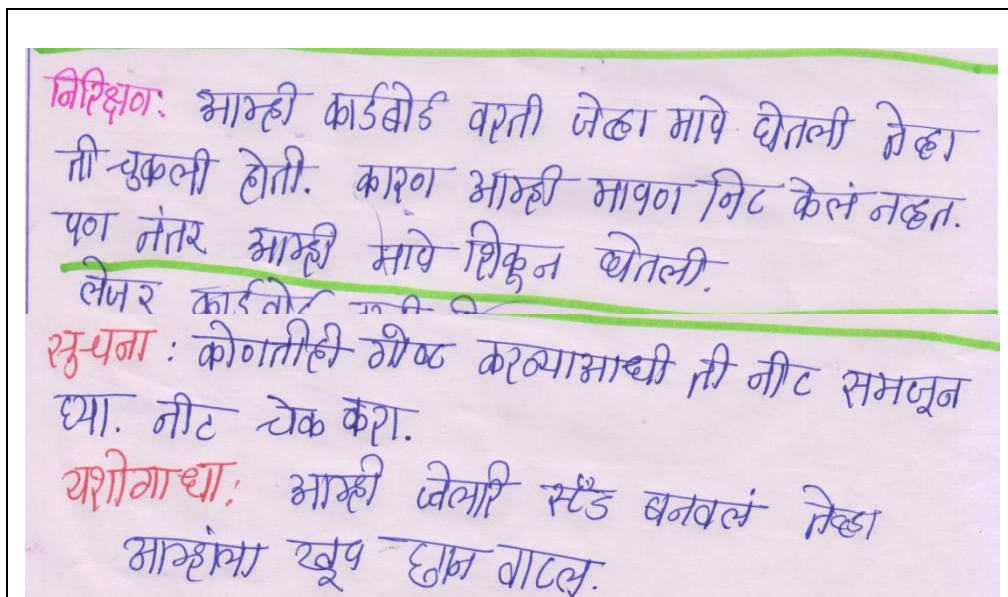 निरिक्षण: आम्ही कार्डबोर्ड वरती जेव्हा मापे घेतली तेव्हा
ती चुकली होती. कारण आम्ही मापण निट केलं नव्हत.
पण नंतर आम्ही मापे शिकून घेतली.
लेजर कार्डबोर्ड
सुचना: कोणतीही गोष्ट करण्याआधी ती नीट समजून
घ्या. नीट चेक करा.
यशोगाथा: आम्ही ज्वेलरि स्टॅंड बनवलं तेव्हा
आम्हांला खूप छान वाटल.